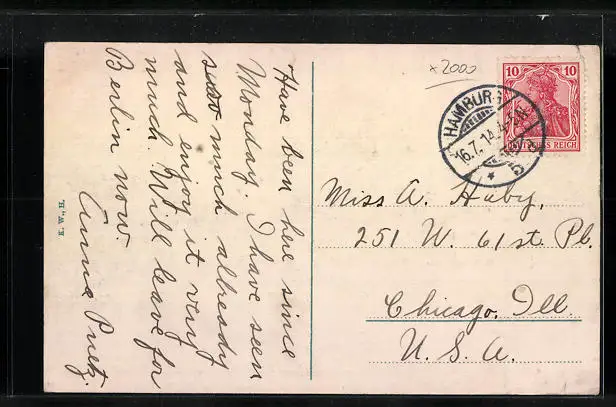 Have been here since
Monday. I have seen
so much already
and enjoy it very
much. Will leave for
Berlin now.
Anna Puetz.
E. W., H.
x2000
10 10
DEUTSCHES REICH
HAMBURG
16.7.14.
5
Miss A. Huby,
251 W. 61st. Pl.
Chicago, Ill.
U. S. A.